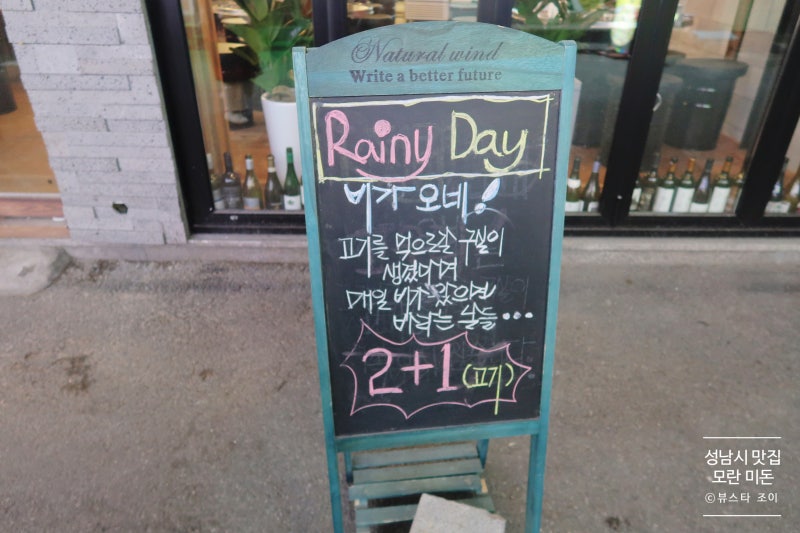 Natural wind
Write a better future
Rainy Day
비가 오네!
고기를 먹으러갈 구실이
생겼다며
매일 비가 왔으면
바라는 날들...
2+1 (고기)
성남시 맛집
모란 미돈
©뷰스타 조이